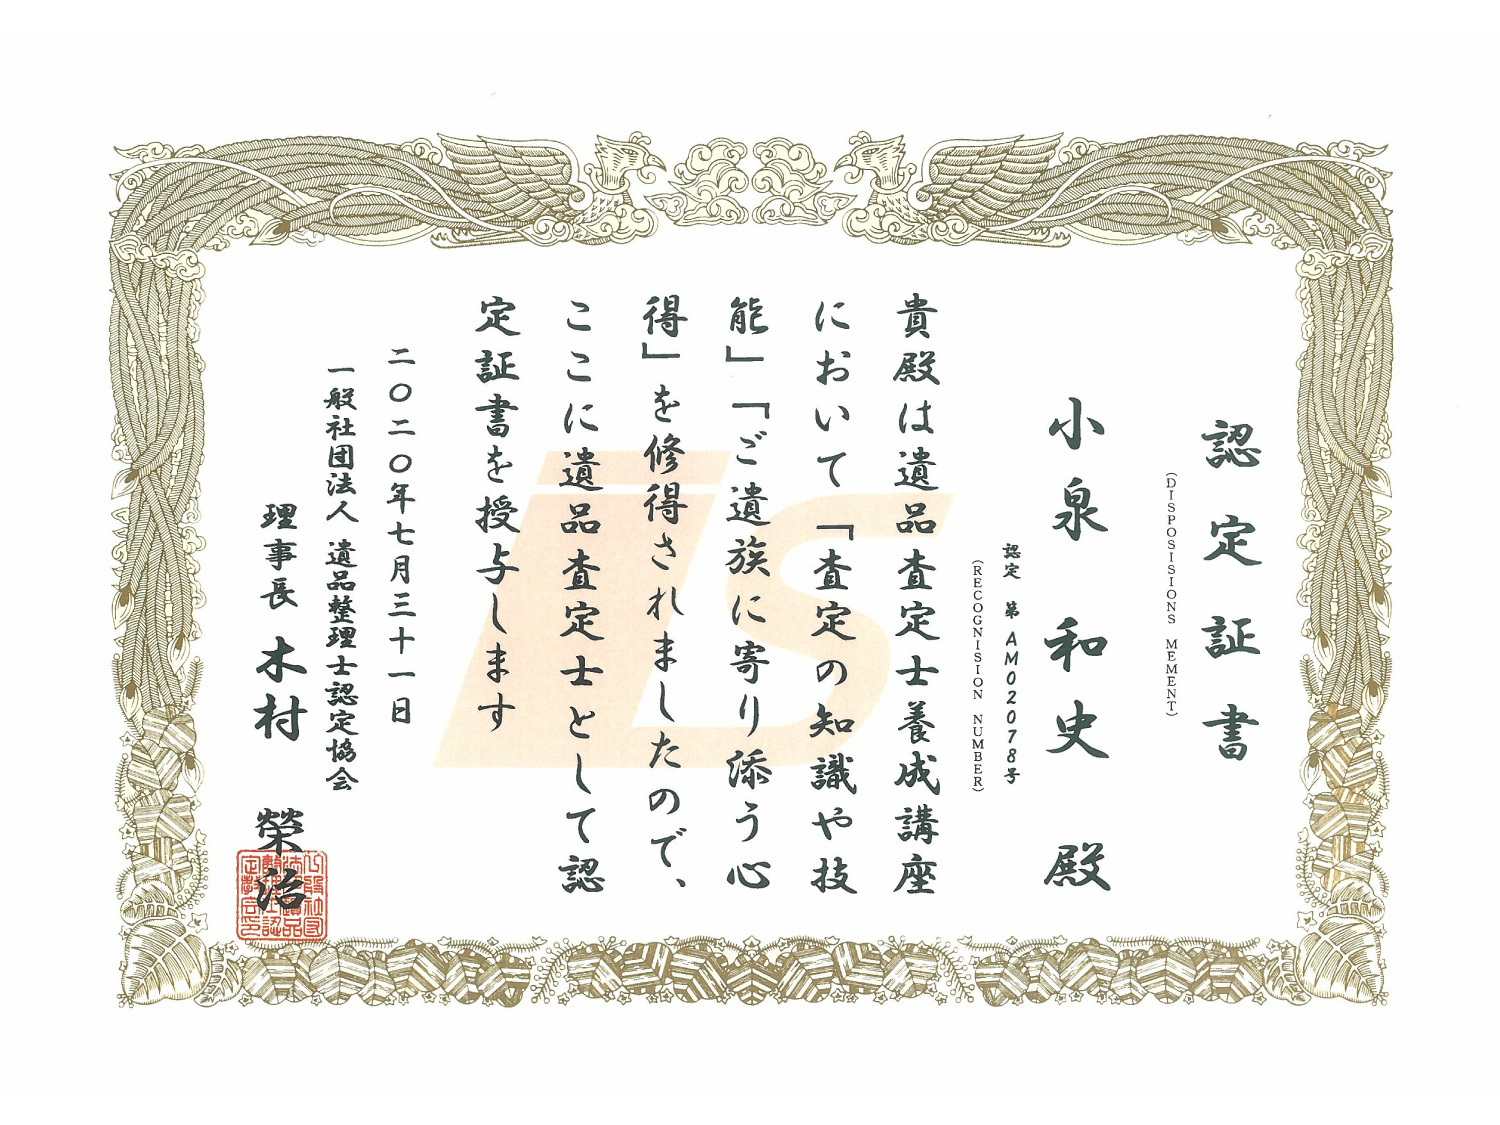 認定証書
(DISPOSISIONS MEMENT)
小泉 和史 殿
認定 第AM02078号
(RECOGNISION NUMBER)
貴殿は遺品査定士養成講座
において「査定の知識や技
能」「ご遺族に寄り添う心
得」を修得されましたので、
ここに遺品査定士として認
定証書を授与します
二〇二〇年七月三十一日
一般社団法人 遺品整理士認定協会
理事長 木村 榮治